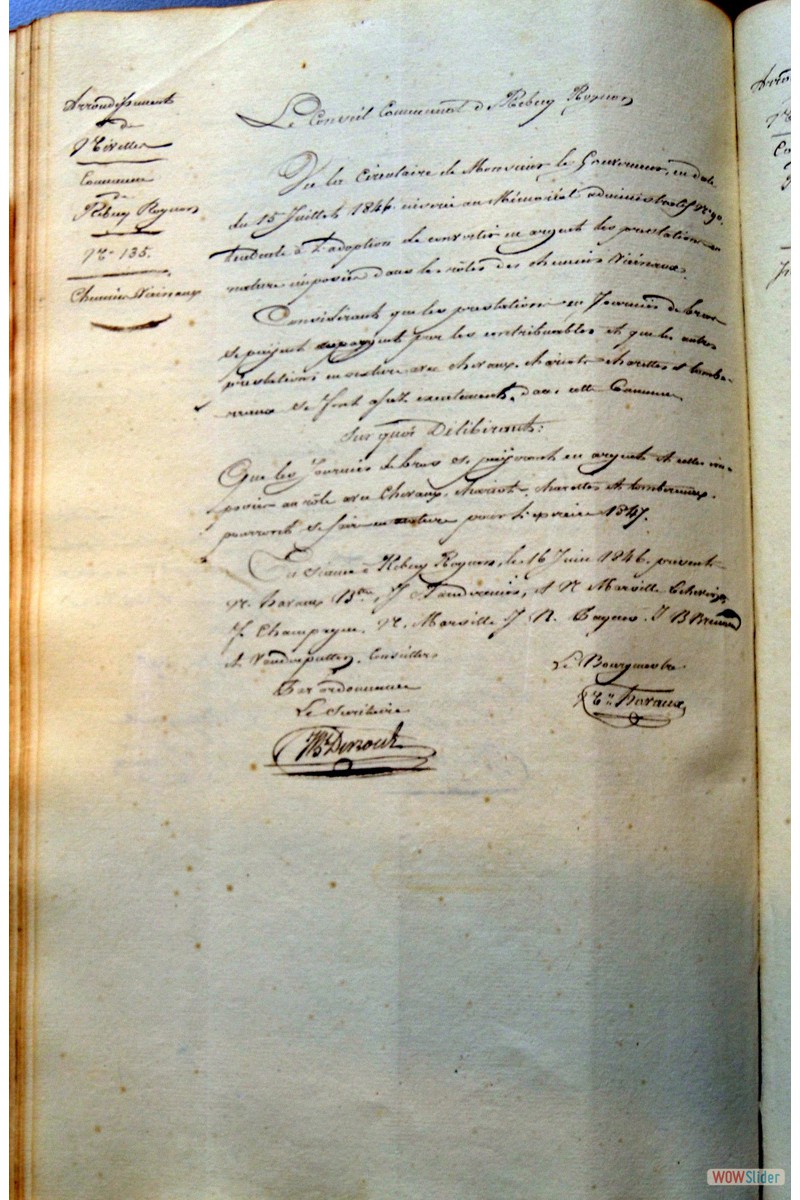 Arrondissement
de
Nivelles
Commune
de
Rebecq Rognon
N° 135.
Chemins Vicinaux
Le Conseil Communal de Rebecq Rognon
Vu la Circulaire de Monsieur le Gouverneur, en date
du 15 Juillet 1846 inserée au Mémorial administratif N° 90.
tendante à l'adoption de convertir en argent les prestations en
nature imposées dans les rôles des chemins Vicinaux.
Considérant que les prestations en Journées de bras
se paient par les contribuables et que les autres
prestations en nature avec chevaux, chariots charettes et tombe-
reaux se font assez exactement, dans cette Commune,
Sur quoi Délibérant:
Que les Journées de bras se paieront en argent et celles im-
posées au rôle avec Chevaux, chariots, charettes et tombereaux,
pourront se faire en nature pour l'exercice 1847.
En séance à Rebecq Rognon, le 16 Juin 1846. présents
N. Havaux Btre, J, et N. Marsille Echevins,
J. Champagne, N. Marsille J. N. Payen. J B
et Vanderputten, Conseillers
Par ordonnance
Le Secrétaire
Le Bourgmestre
Havaux
WOWSlider